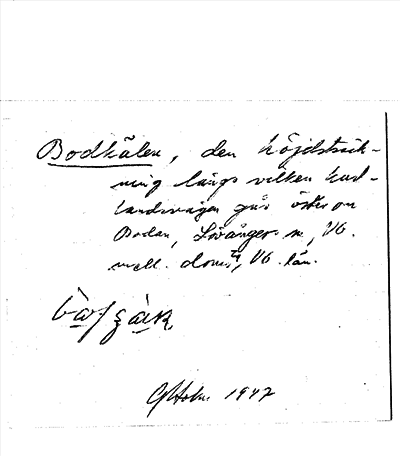 Bodkälen, den höjdsträck-
ning längs vilken kust-
landsvägen går öster om
Bodan, Lövångers sn, Vb.
mell. doms., Vb. län.
G Holm 1947